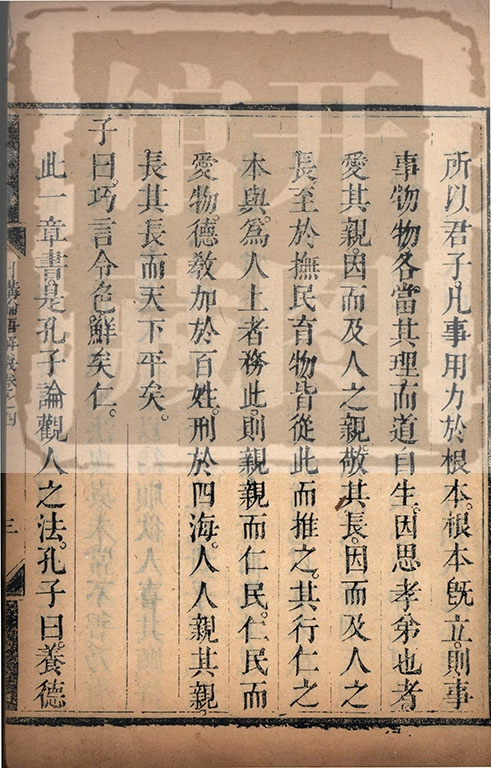 所以君子。凡事用力於根本。根本旣立。則事
事物物各當其理而道自生。因思孝弟也者
愛其親因而及人之親。敬其長。因而及人之
長至於撫民育物皆從此而推之。其行仁之
本與。爲人上者務此。則親親而仁民。仁民而
愛物。德敎加於百姓。刑於四海。人人親其親。
長其長而天下平矣。
子曰。巧言令色。鮮矣仁。
此一章書。是孔子論觀人之法。孔子曰。養德
三